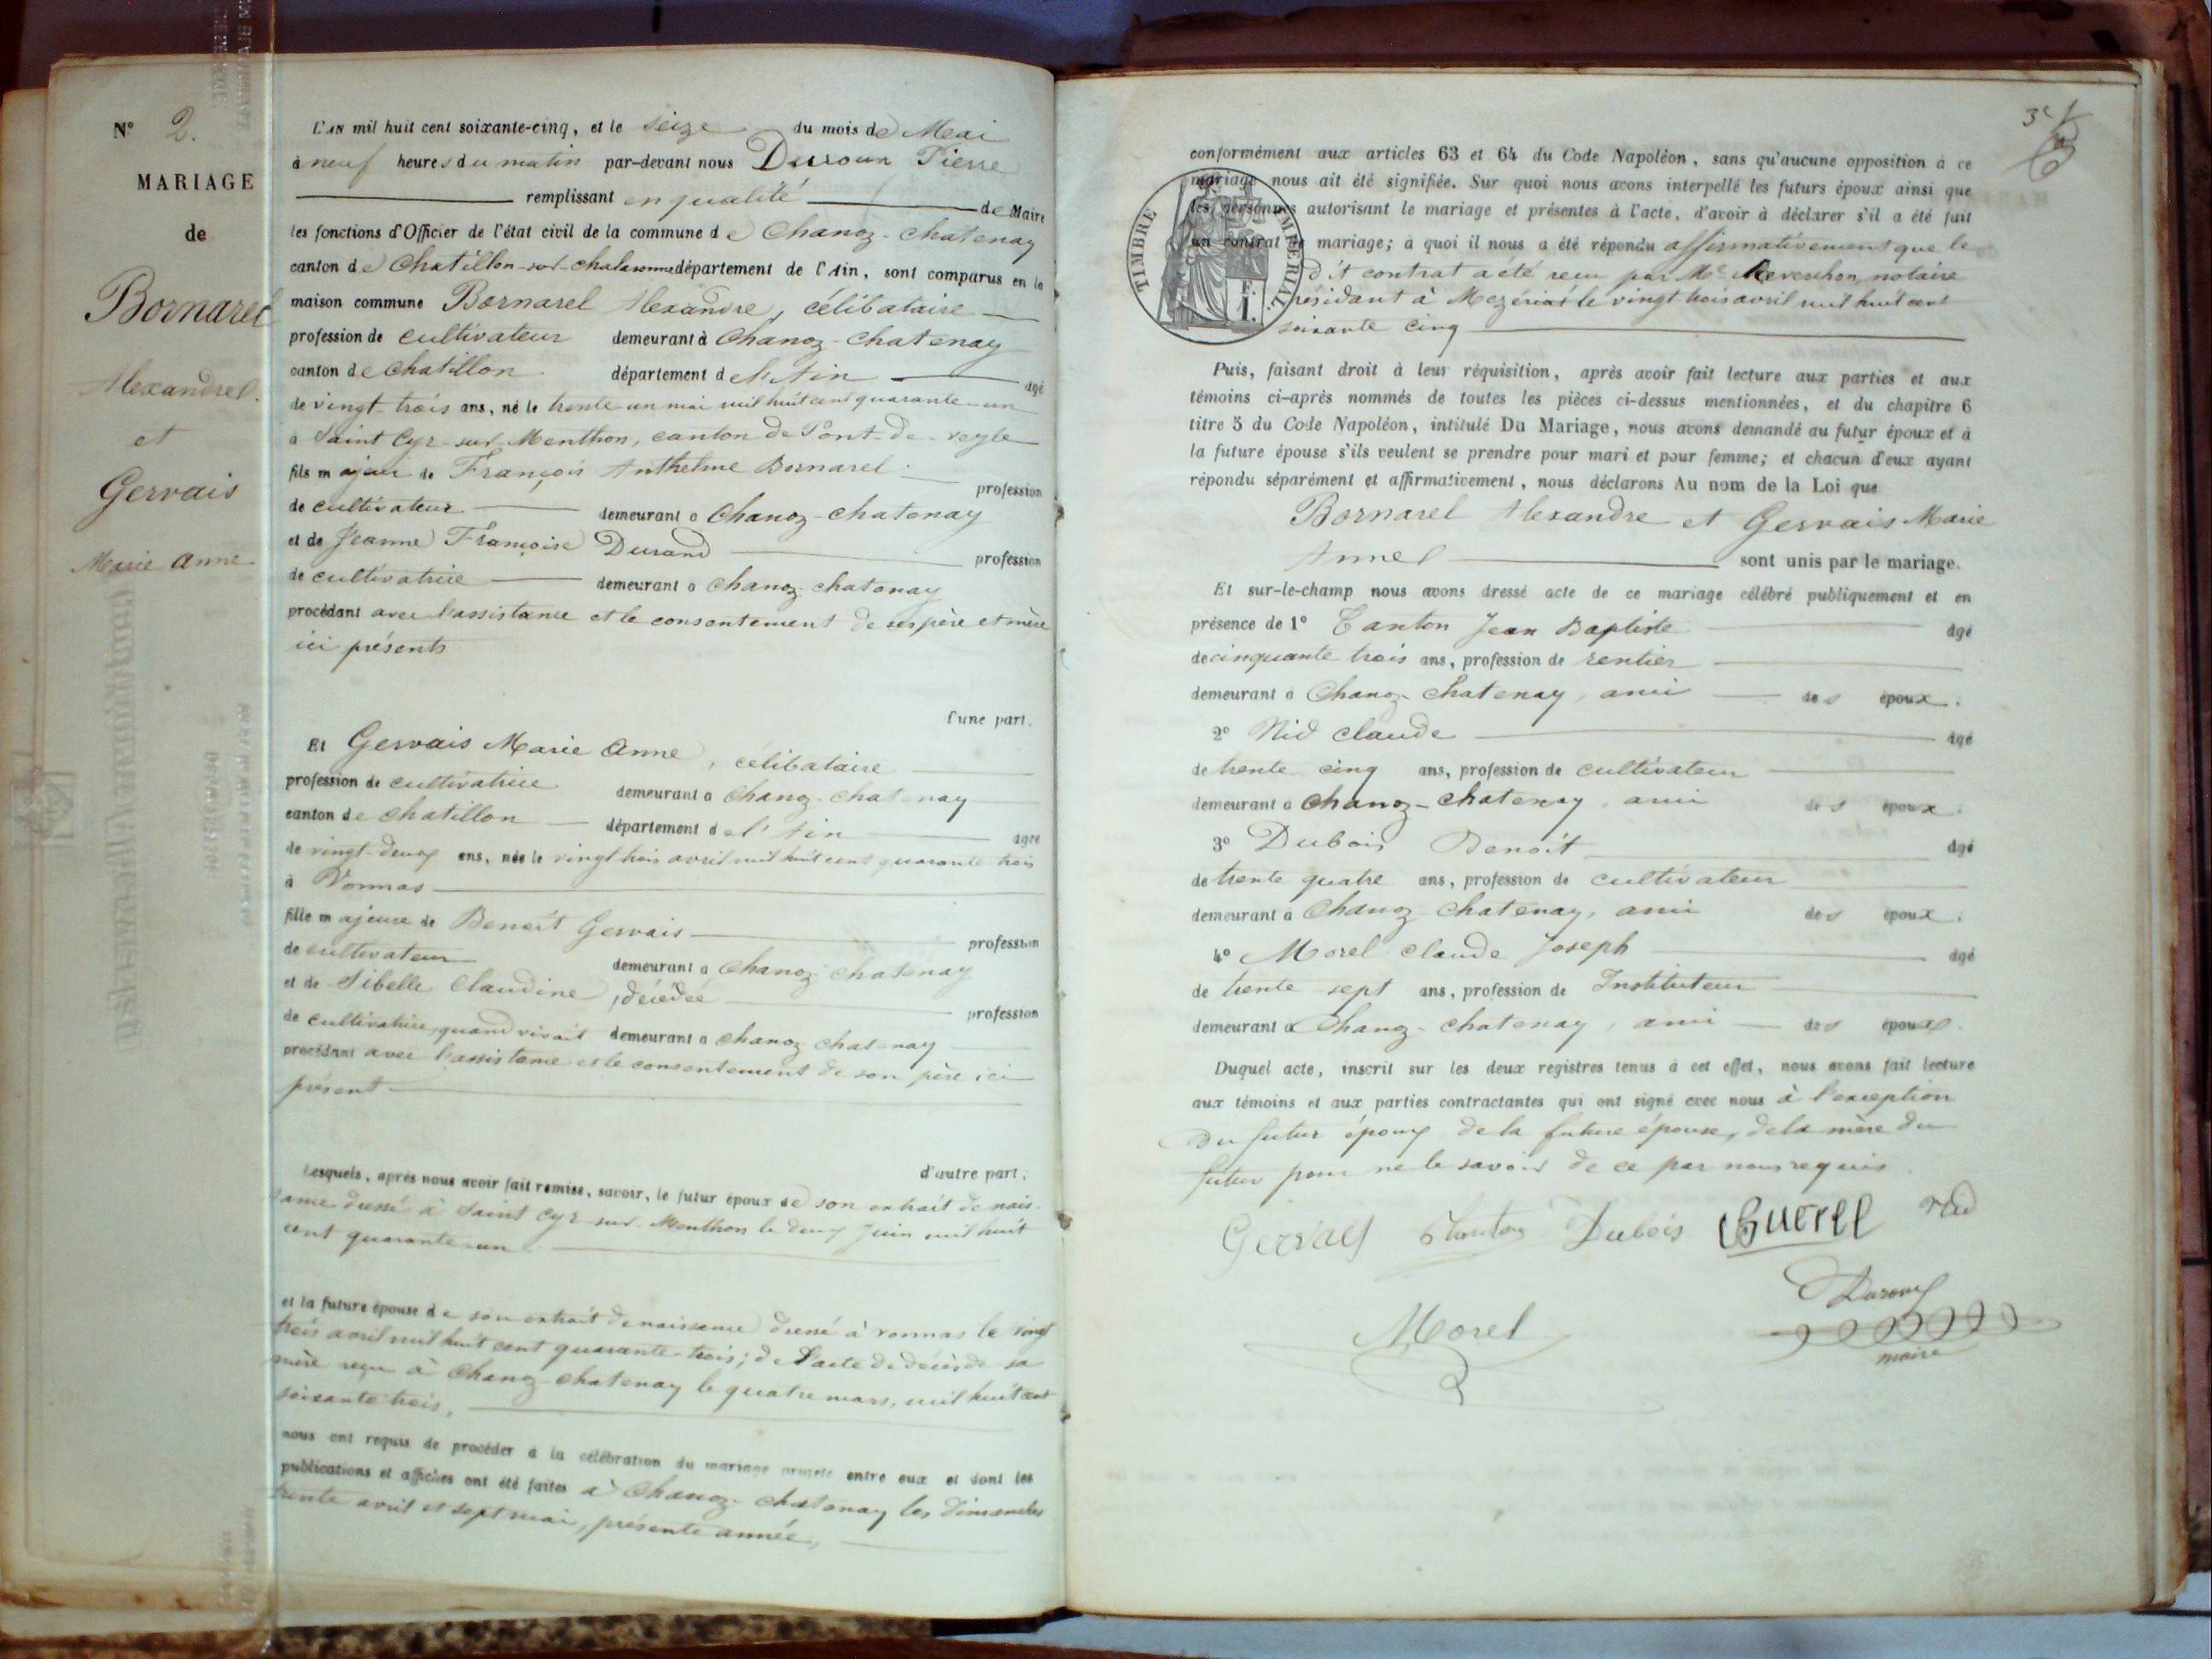 N° 2.
MARIAGE
de
Bornarel
Alexandre
et
Gervais
Marie Anne
L'AN mil huit cent soixante-cinq, et le seize du mois de Mai
à neuf heures du matin par-devant nous Duroux Pierre
remplissant en qualité de Maire
les fonctions d'Officier de l'état civil de la commune de Chanoz-Chatenay
canton de Chatillon-sur-chalaronne département de l'Ain, sont comparus en la
maison commune Bornarel Alexandre, célibataire
profession de cultivateur demeurant à Chanoz-Chatenay
canton de Chatillon département de l'Ain âgé
de vingt-trois ans, né le trente un mai mil huit cent quarante-un
à Saint Cyr-sur-Menthon, canton de Pont-de-veyle
fils majeur de François Anthelme Bornarel profession
de cultivateur demeurant à Chanoz-Chatenay
et de Jeanne Françoise Durand profession
de cultivatrice demeurant à Chanoz-chatenay
procédant avec l'assistance et le consentement de ses père et mère
ici présents
d'une part.
Et Gervais Marie Anne, célibataire
profession de cultivatrice demeurant à Chanoz-chatenay
canton de Chatillon département de l'Ain agée
de vingt-deux ans, née le vingt trois avril mil huit cent quarante trois
à Vonnas
fille majeure de Benoît Gervais profession
de cultivateur demeurant à Chanoz chatenay
et de Sibelle Claudine, décédée profession
de cultivatrice, quand vivait demeurant à chanoz chatenay
procédant avec l'assistance et le consentement de son père ici
présent
d'autre part;
Lesquels, après nous avoir fait remise, savoir, le futur époux de son extrait de nais
sance dressé à Saint Cyr-sur-Menthon le deux Juin mil huit
cent quarante-un
et la future épouse de son extrait de naissance dressé à vonnas le vingt
trois avril mil huit cent quarante-trois; de l'acte de décès de sa
mère reçu à Chanoz chatenay le quatre mars, mil huit cent
soixante trois,
nous ont requis de procéder à la célébration du mariage projeté entre eux et dont les
publications et affiches ont été faites à Chanoz-chatenay les dimanches
trente avril et sept mai, présente année,
conformément aux articles 63 et 64 du Code Napoléon, sans qu'aucune opposition à ce
mariage nous ait été signifiée. Sur quoi nous avons interpellé les futurs époux ainsi que
les personnes autorisant le mariage et présentes à l'acte, d'avoir à déclarer s'il a été fait
un contrat de mariage; à quoi il nous a été répondu affirmativement que le
dit contrat a été reçu par Me Reverchon, notaire
résidant à Mezériat le vingt trois avril mil huit cent
soixante cinq
TIMBRE IMPÉRIAL
F.
1.
Puis, faisant droit à leur réquisition, après avoir fait lecture aux parties et aux
témoins ci-après nommés de toutes les pièces ci-dessus mentionnées, et du chapitre 6
titre 5 du Code Napoléon, intitulé Du Mariage, nous avons demandé au futur époux et à
la future épouse s'ils veulent se prendre pour mari et pour femme; et chacun d'eux ayant
répondu séparément et affirmativement, nous déclarons Au nom de la Loi que
Bornarel Alexandre et Gervais Marie
Anne sont unis par le mariage.
Et sur-le-champ nous avons dressé acte de ce mariage célébré publiquement et en
présence de 1° Canton Jean Baptiste âgé
de cinquante trois ans, profession de rentier
demeurant à Chanoz-Chatenay, ami des époux.
2° Nid Claude âgé
de trente cinq ans, profession de cultivateur
demeurant à Chanoz-chatenay, ami des époux.
3° Dubois Benoit âgé
de trente quatre ans, profession de cultivateur
demeurant à Chanoz-Chatenay, ami des époux.
4° Morel Claude Joseph âgé
de trente sept ans, profession de Instituteur
demeurant à Chanoz-chatenay, ami des époux.
Duquel acte, inscrit sur les deux registres tenus à cet effet, nous avons fait lecture
aux témoins et aux parties contractantes qui ont signé avec nous à l'exception
du futur époux de la future épouse, de la mère du
futur pour ne le savoir de ce par nous requis
Gervais Dubois Nid
Duroux
Morel
maire